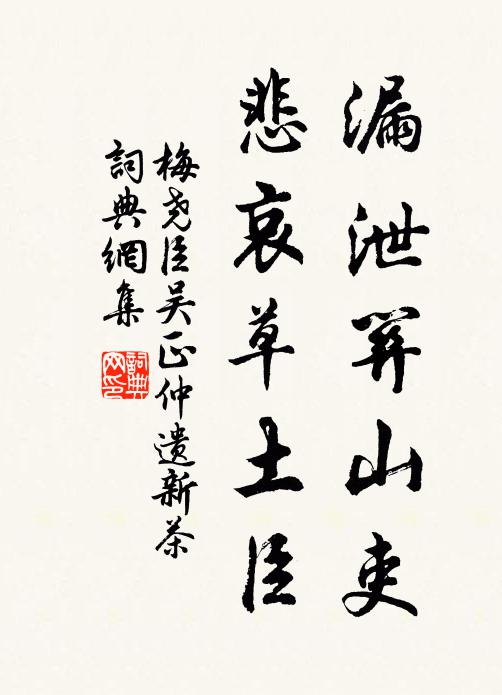 漏泄關山吏
悲哀草土臣
梅尧臣吴正仲遺新茶
詞典網集
詞典
网印